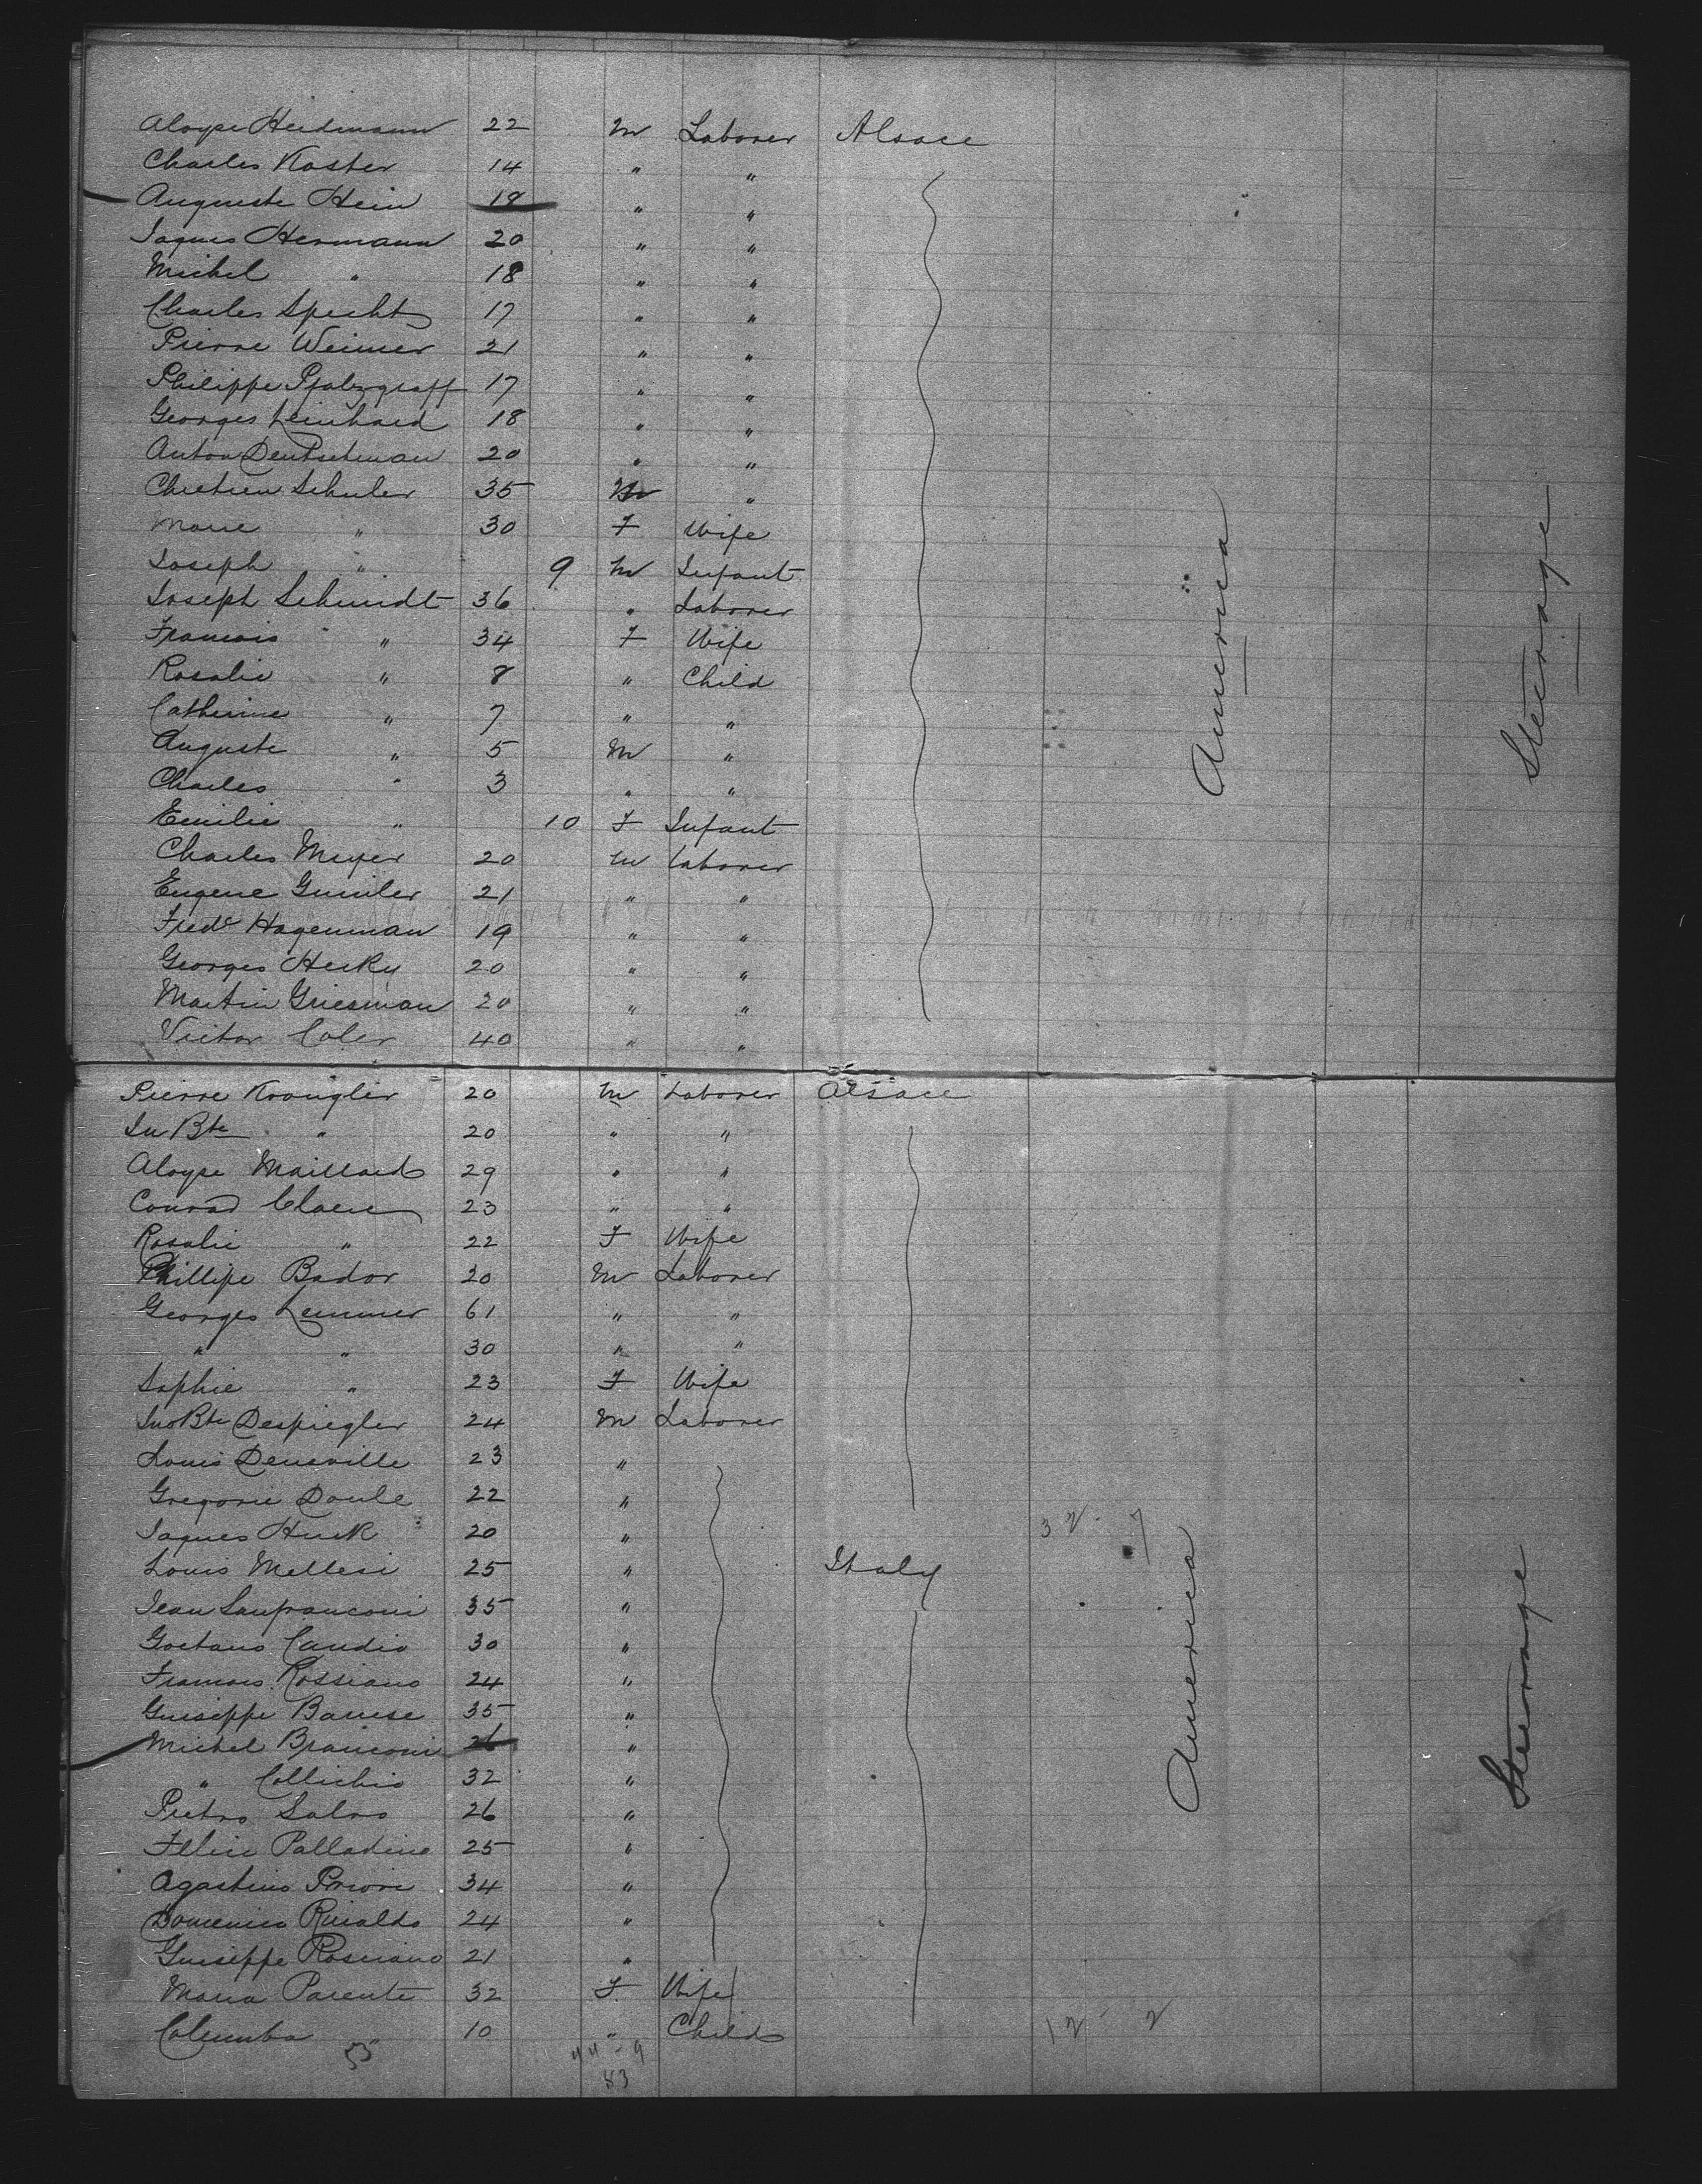 Aloyse Heidmann 22 M Laborer Alsace
Charles Koster 14 " "
Auguste Hein 19 " "
Jaques Hermann 20 " "
Michel " 18 " "
Charles Specht 17 " "
Pierre Weimer 21 " "
Philippe Pfalzgraff 17 " "
Georges Leinhard 18 " "
Anton Deutschman 20 " "
Chretien Schuler 35 M "
Marie " 30 F Wife
Joseph " 9 M Infant
Joseph Schmidt 36 " Laborer
Francois " 34 F Wife
Rosalie " 8 " Child
Catherine " 7 " "
Auguste " 5 M "
Charles " 3 " "
Emilie " 10 F Infant
Charles Meyer 20 M Laborer
Eugene 21 " "
Fredc Hagenman 19 " "
Georges Hecky 20 " "
Martin Griesman 20 " "
Victor Coler 40 " "
America
Steerage
Pierre Krongler 20 M Laborer Alsace
Jn Bte " 20 " "
Aloyse Maillard 29 " "
Conrad 23 " "
Rosalie " 22 F Wife
Phillipe Bador 20 M Laborer
Georges Lemmer 61 " "
" " 30 " "
Sophie " 23 F Wife
Jno Bte Despiegler 24 M Laborer
Louis Deneville 23 "
Gregorie Doule 22 "
Jaques Huck 20 "
Louis Mellesi 25 " Italy
Jean Lanfranconi 35 "
Gaetano Candio 30 "
Francois Rossiano 24 "
Guiseppe Barrese 35 "
Michel Branconi 26 "
" Collichio 32 "
Pietro Salvo 26 "
Felice Palladino 25 "
Agostino Priori 34 "
Domenico Rinaldo 24 "
Guiseppe Rosciano 21 "
Maria Parente 32 F Wife
Columba " 10 " Child
America
Steerage
53
44-9
53